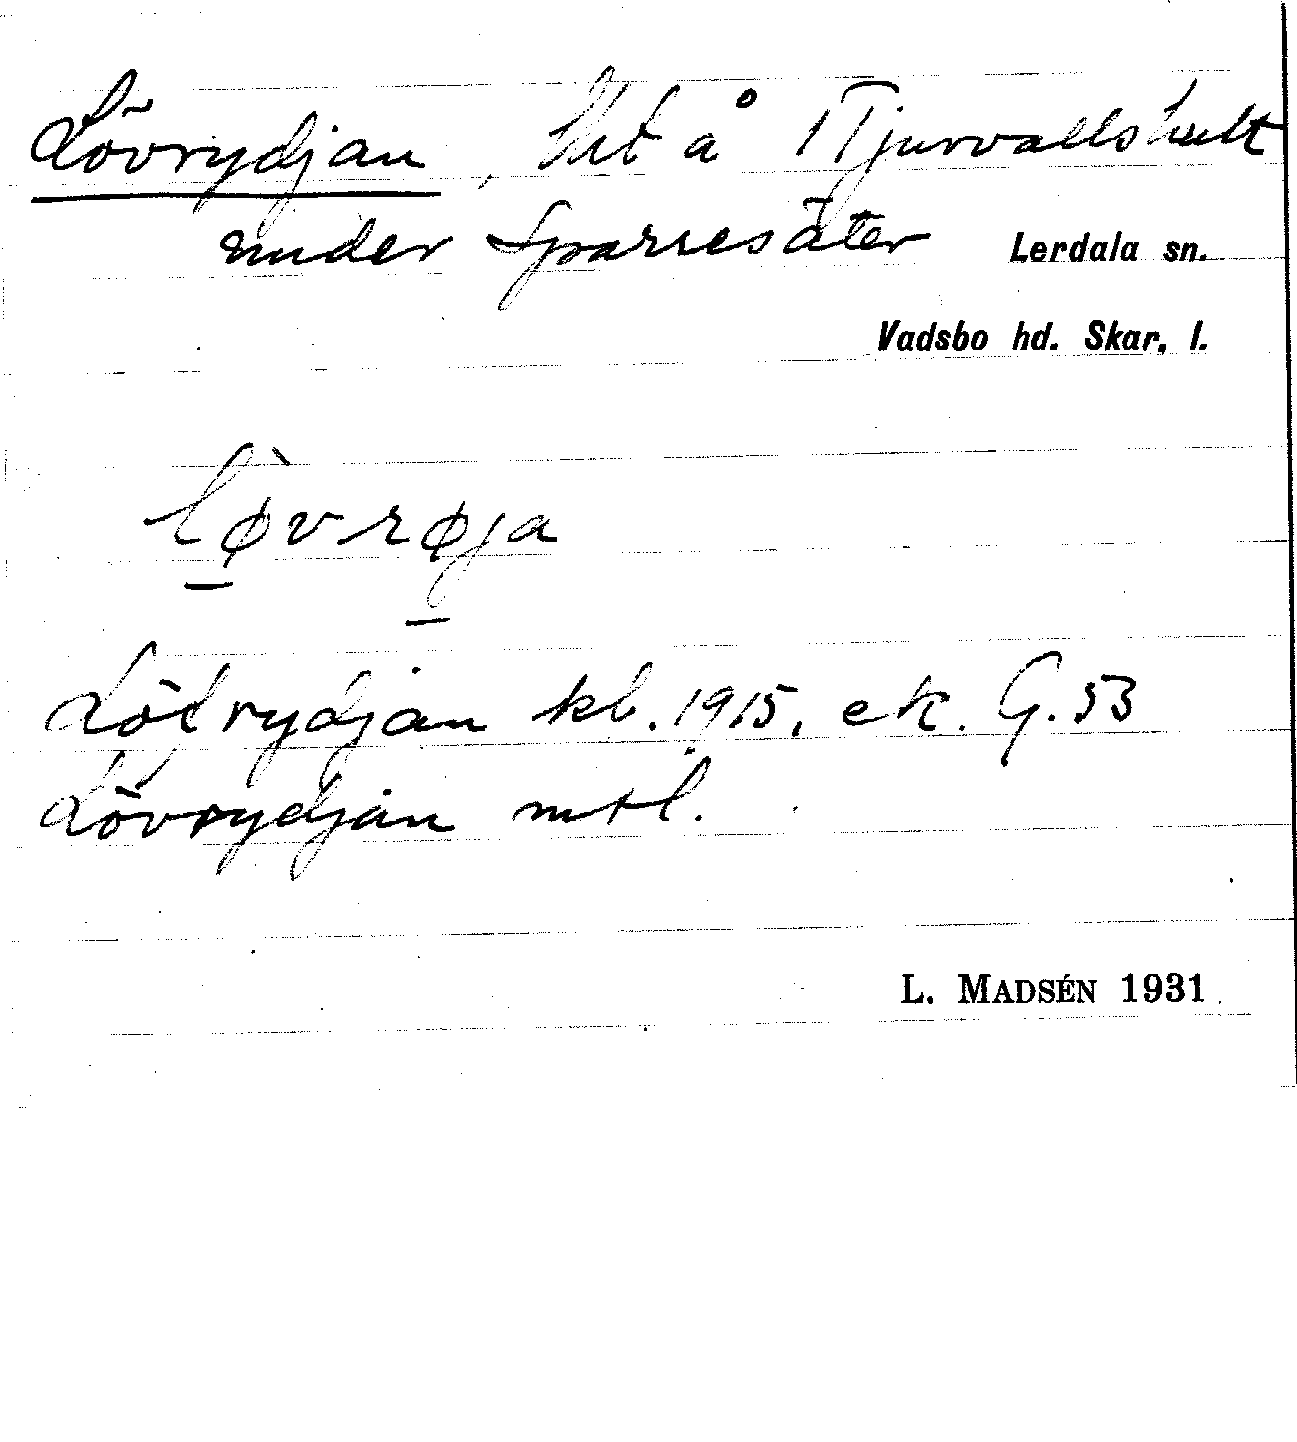 Lövrydjan, tht å Tjurvallshult
under Sparresäter Lerdala sn.
Vadsbo hd. Skar. l.
lø̀vrøja
Löfrydjan kb. 1915, ek. G. 53
Lövrydjan mtl.
L. MADSÉN 1931